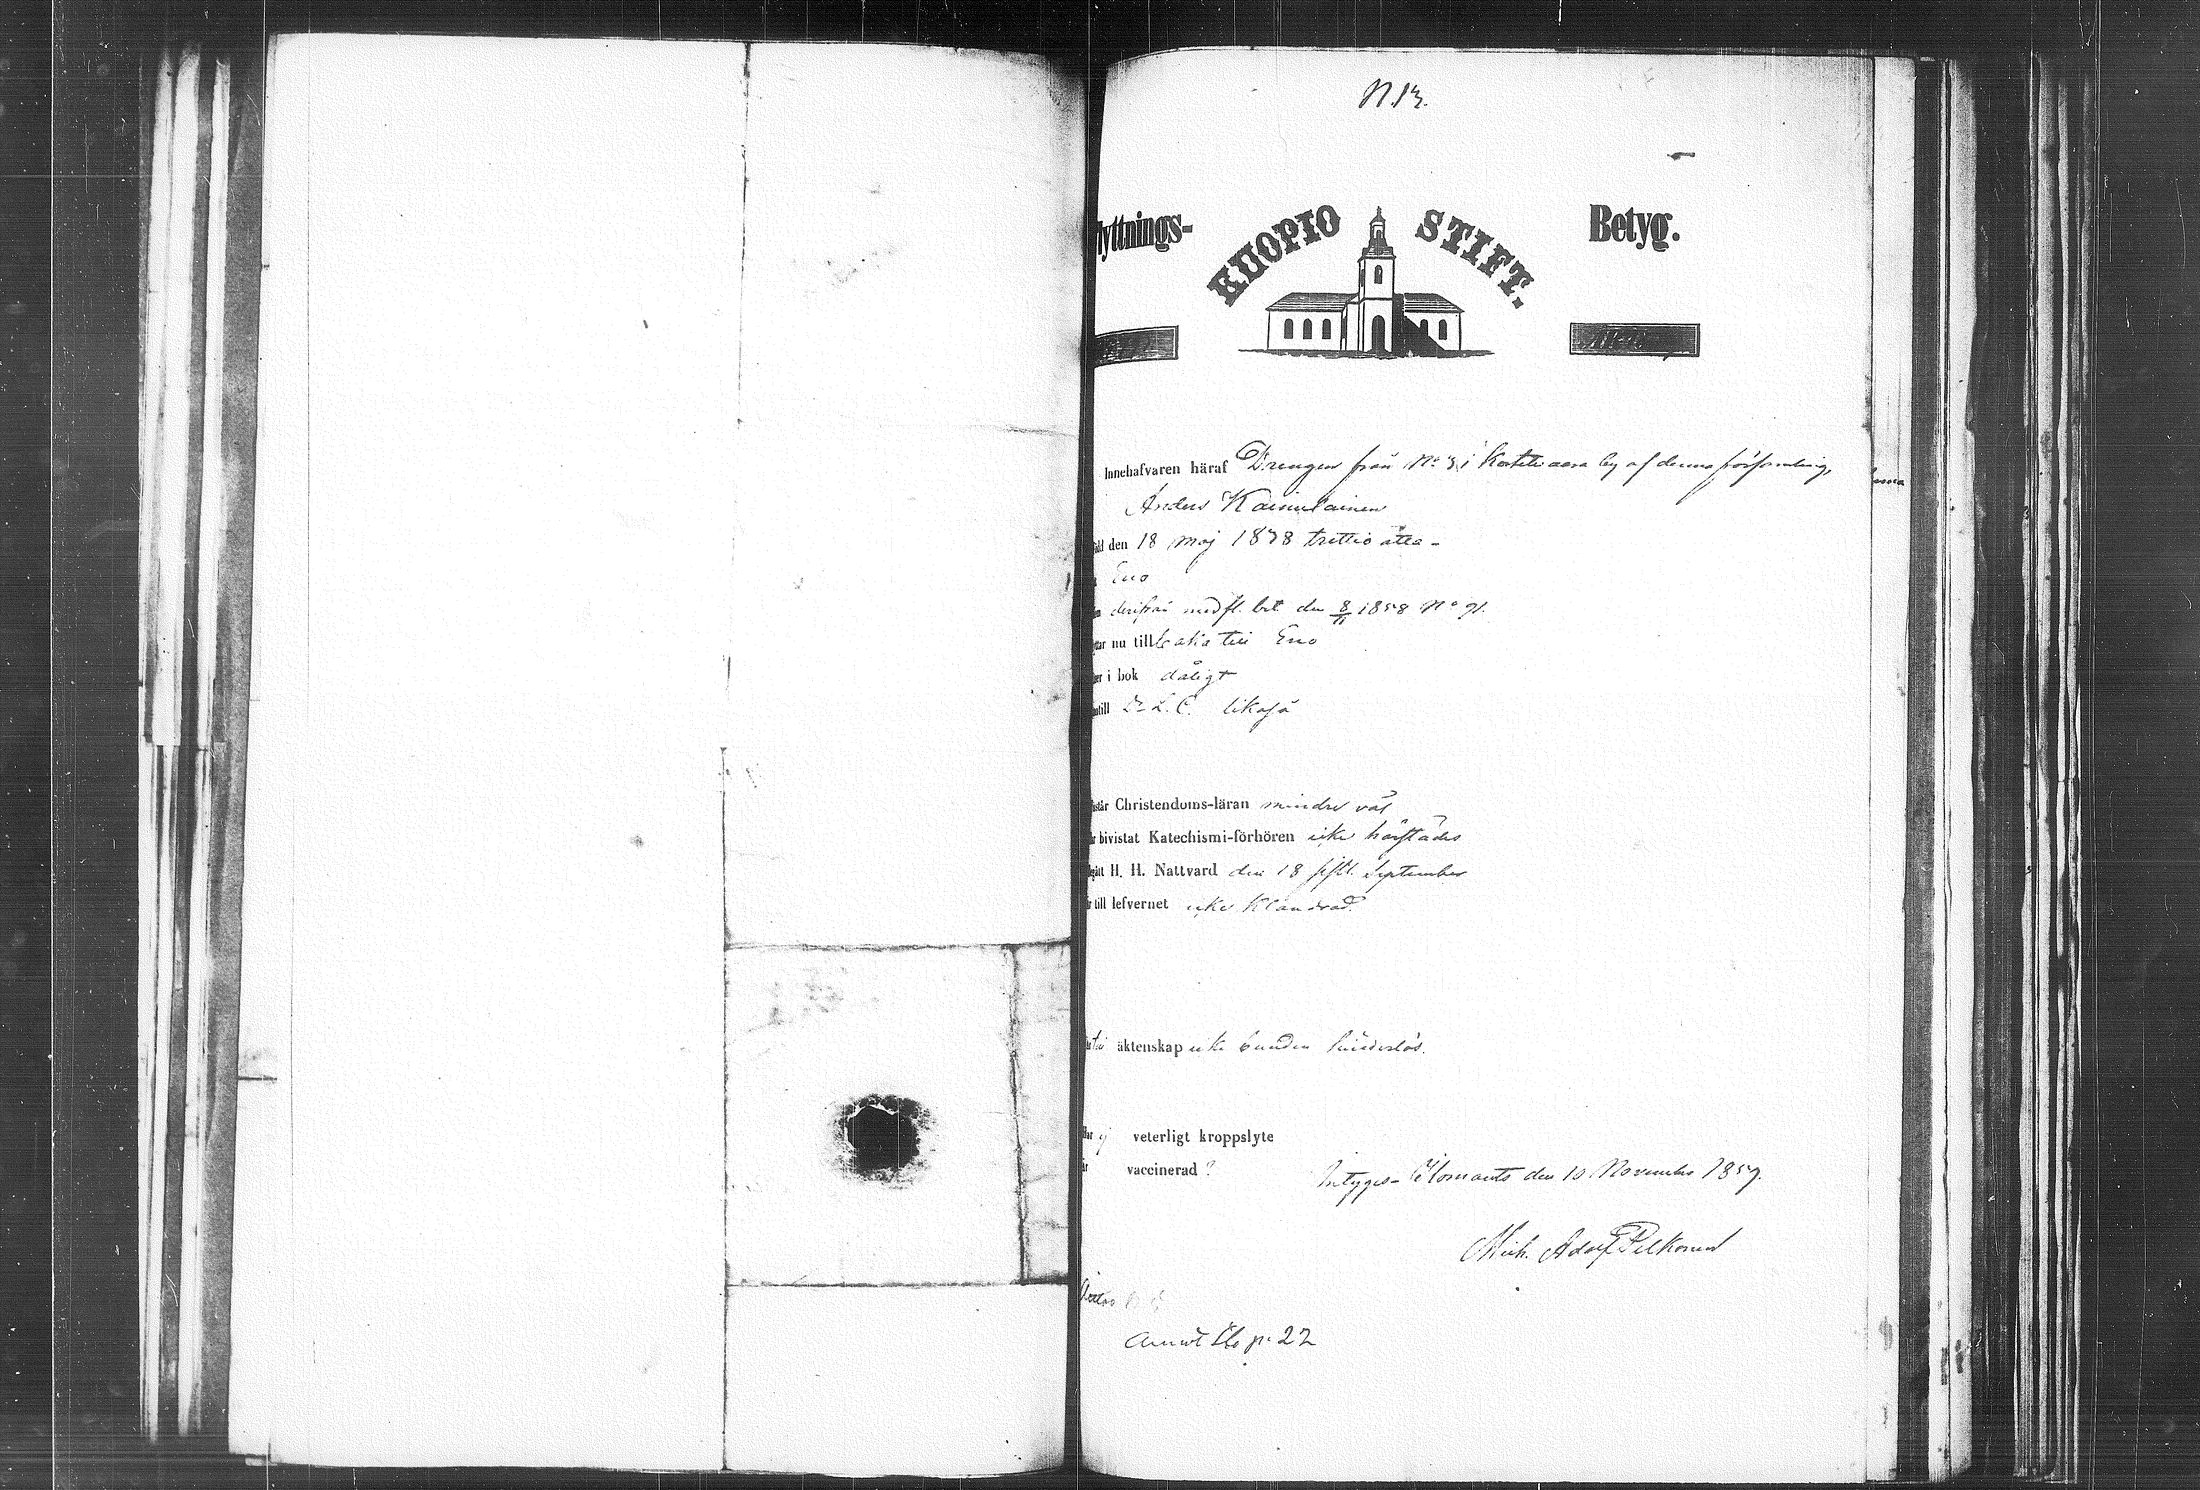 N. 13.
lyttnings- KUOPIO STIFT. Betyg.
Innehafvaren häraf Drengen från No 3 i Kortevaara by af denna församling,
Anders Kaimulainen
den 18 Maj 1838 trettio åtta -
Eno
derifrån med fl. bet. den 8/11 1858 No 91.
nu till baka till Eno
i bok dåligt
D:r L. C. likaså
Christendoms-läran mindre väl
bivistat Katechismi-förhören icke härstädes
H. H. Nattvard den 18 sistl. September
till lefvernet icke klandrad.
äktenskap icke bunden hinderlös.
ej veterligt kroppslyte
vaccinerad ?
Intygas - Ilomants den 10 November 1859.
Mich. Adolf Pelkonen
p. 22